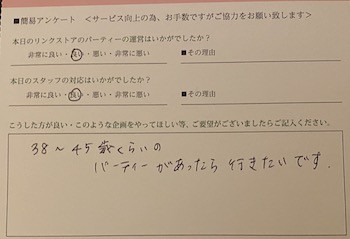 ■簡易アンケート　＜サービス向上の為、お手数ですがご協力をお願い致します＞
本日のリンクストアのパーティーの運営はいかがでしたか？
非常に良い・良い・悪い・非常に悪い　■その理由
本日のスタッフの対応はいかがでしたか？
非常に良い・良い・悪い・非常に悪い　■その理由
こうした方が良い・このような企画をやってほしい等、ご要望がございましたらご記入ください。
38～45歳くらいの
パーティーがあったら行きたいです.